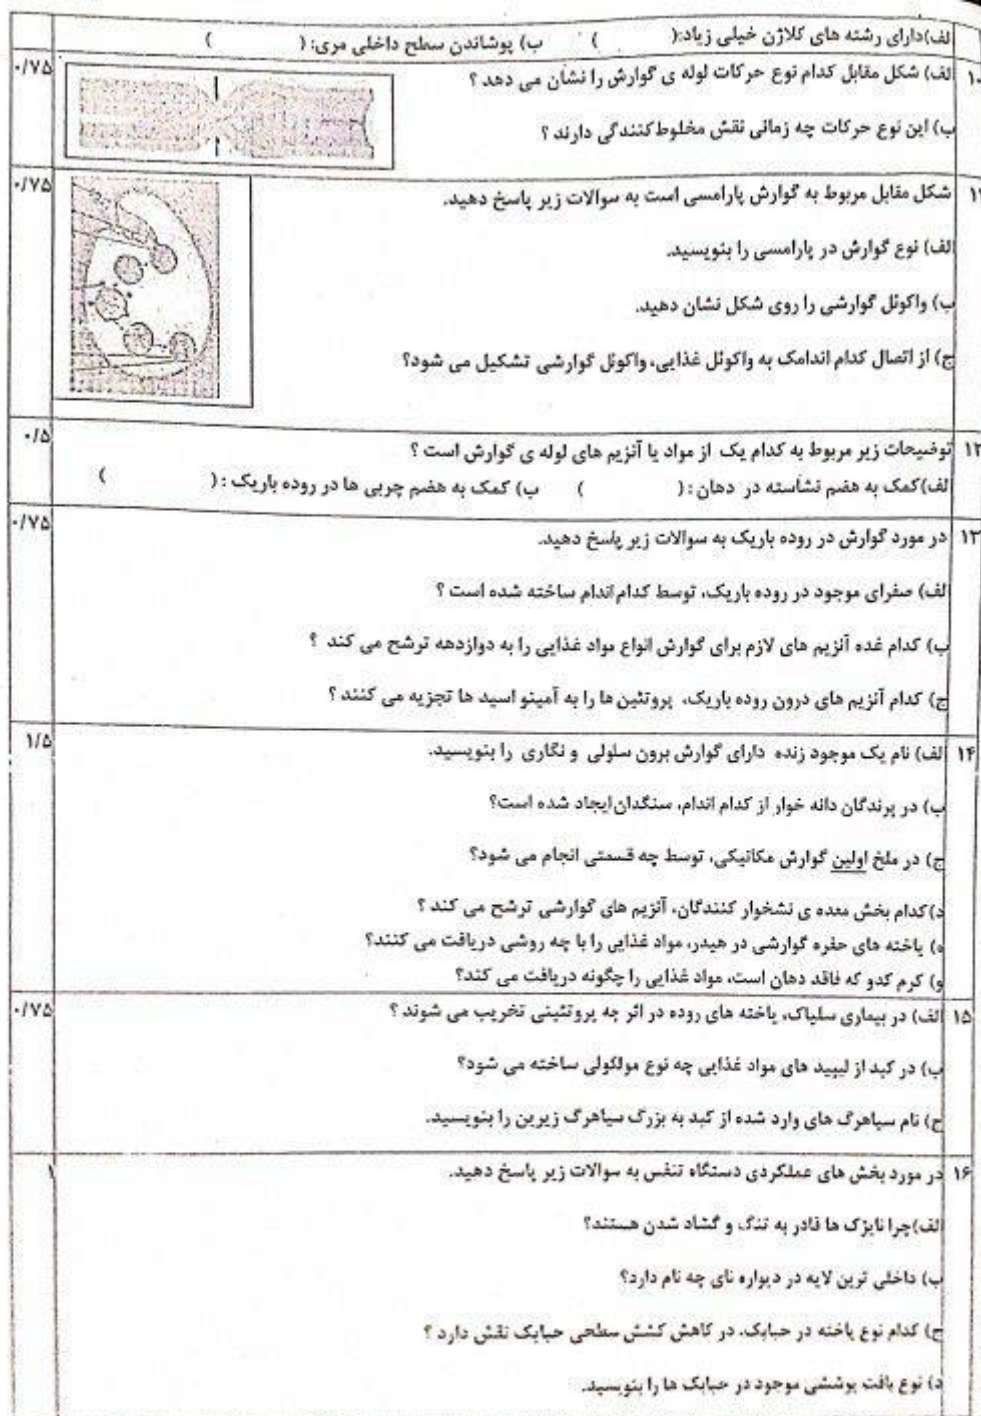 الف)دارای رشته های کلاژن خیلی زیاد:( ) ب) پوشاندن سطح داخلی مری: ( )
الف) شکل مقابل کدام نوع حرکات لوله ی گوارش را نشان می دهد ؟ ۰/۷۵
ب) این نوع حرکات چه زمانی نقش مخلوط کنندگی دارند ؟
شکل مقابل مربوط به گوارش پارامسی است به سوالات زیر پاسخ دهید. ۰/۷۵
الف) نوع گوارش در پارامسی را بنویسید.
ب) واکوئل گوارشی را روی شکل نشان دهید.
ج) از اتصال کدام اندامک به واکوئل غذایی، واکوئل گوارشی تشکیل می شود؟
۱۲ توضیحات زیر مربوط به کدام یک از مواد یا آنزیم های لوله ی گوارش است ؟ ۰/۵
الف)کمک به هضم نشاسته در دهان : ( ) ب) کمک به هضم چربی ها در روده باریک : ( )
۱۳ در مورد گوارش در روده باریک به سوالات زیر پاسخ دهید. ۰/۷۵
الف) صفرای موجود در روده باریک، توسط کدام اندام ساخته شده است ؟
ب) کدام غده آنزیم های لازم برای گوارش انواع مواد غذایی را به دوازدهه ترشح می کند ؟
ج) کدام آنزیم های درون روده باریک، پروتئین ها را به آمینو اسید ها تجزیه می کنند ؟
۱۴ الف) نام یک موجود زنده دارای گوارش برون سلولی و نگاری را بنویسید. ۱/۵
ب) در پرندگان دانه خوار از کدام اندام، سنگدان ایجاد شده است؟
ج) در ملخ اولین گوارش مکانیکی، توسط چه قسمتی انجام می شود؟
د)کدام بخش معده ی نشخوار کنندگان، آنزیم های گوارشی ترشح می کند ؟
ه) یاخته های حفره گوارشی در هیدر، مواد غذایی را با چه روشی دریافت می کنند؟
و) کرم کدو که فاقد دهان است، مواد غذایی را چگونه دریافت می کند؟
۱۵ الف) در بیماری سلیاک، یاخته های روده در اثر چه پروتئینی تخریب می شوند ؟ ۰/۷۵
ب) در کبد از لیپید های مواد غذایی چه نوع مولکولی ساخته می شود؟
ج) نام سیاهرگ های وارد شده از کبد به بزرگ سیاهرگ زیرین را بنویسید.
۱۶ در مورد بخش های عملکردی دستگاه تنفس به سوالات زیر پاسخ دهید. ۱
الف)چرا نایژک ها قادر به تنگ و گشاد شدن هستند؟
ب) داخلی ترین لایه در دیواره نای چه نام دارد؟
ج) کدام نوع یاخته در حبابک، در کاهش کشش سطحی حبابک نقش دارد ؟
د) نوع بافت پوششی موجود در حبابک ها را بنویسید.